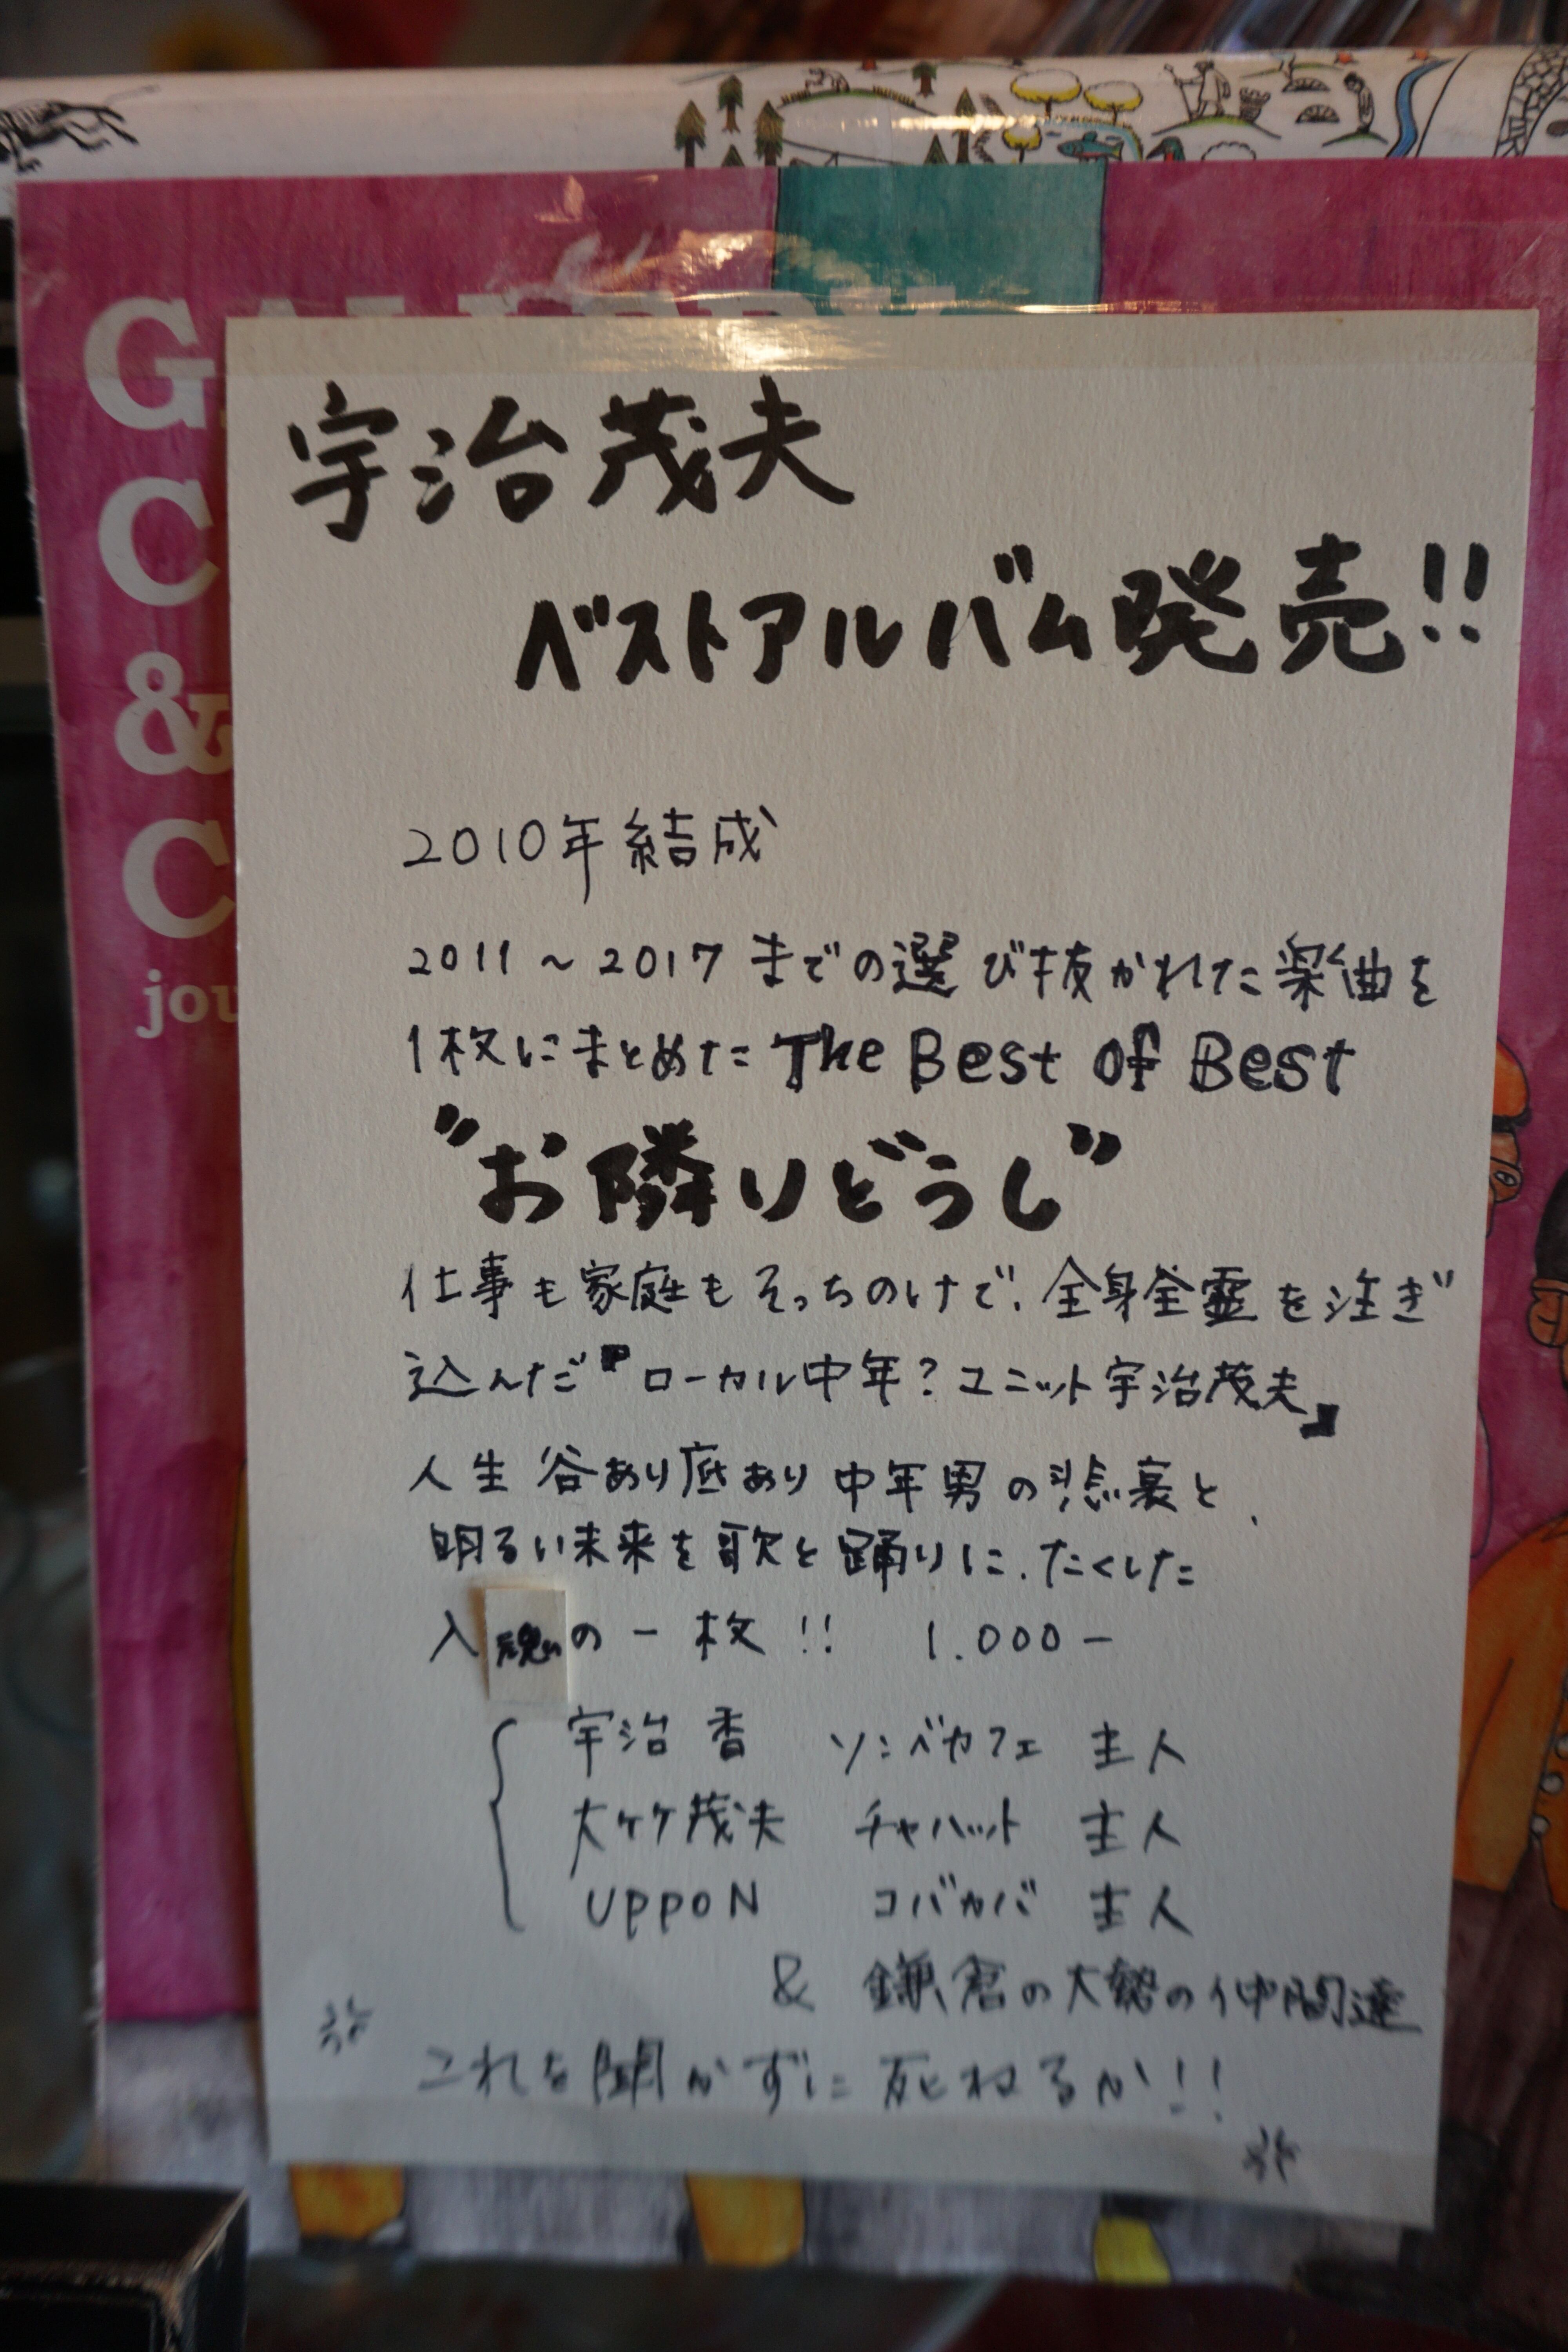 G
C
&
C
jou
宇治茂夫
ベストアルバム発売!!
2010年結成
2011〜2017までの選び抜かれた楽曲を
1枚にまとめた The Best of Best
"お隣りどうし"
仕事も家庭もそっちのけで、全身全霊を注ぎ
込んだ『ローカル中年?ユニット宇治茂夫』
人生 谷あり底あり 中年男の悲哀と、
明るい未来を歌と踊りに、たくした
入魂の一枚!! 1.000-
宇治 香 ソンベカフェ 主人
大ケケ茂夫 チャハット 主人
UPPON コバカバ 主人
& 鎌倉の大勢の仲間達
これを聞かずに死ねるか!!